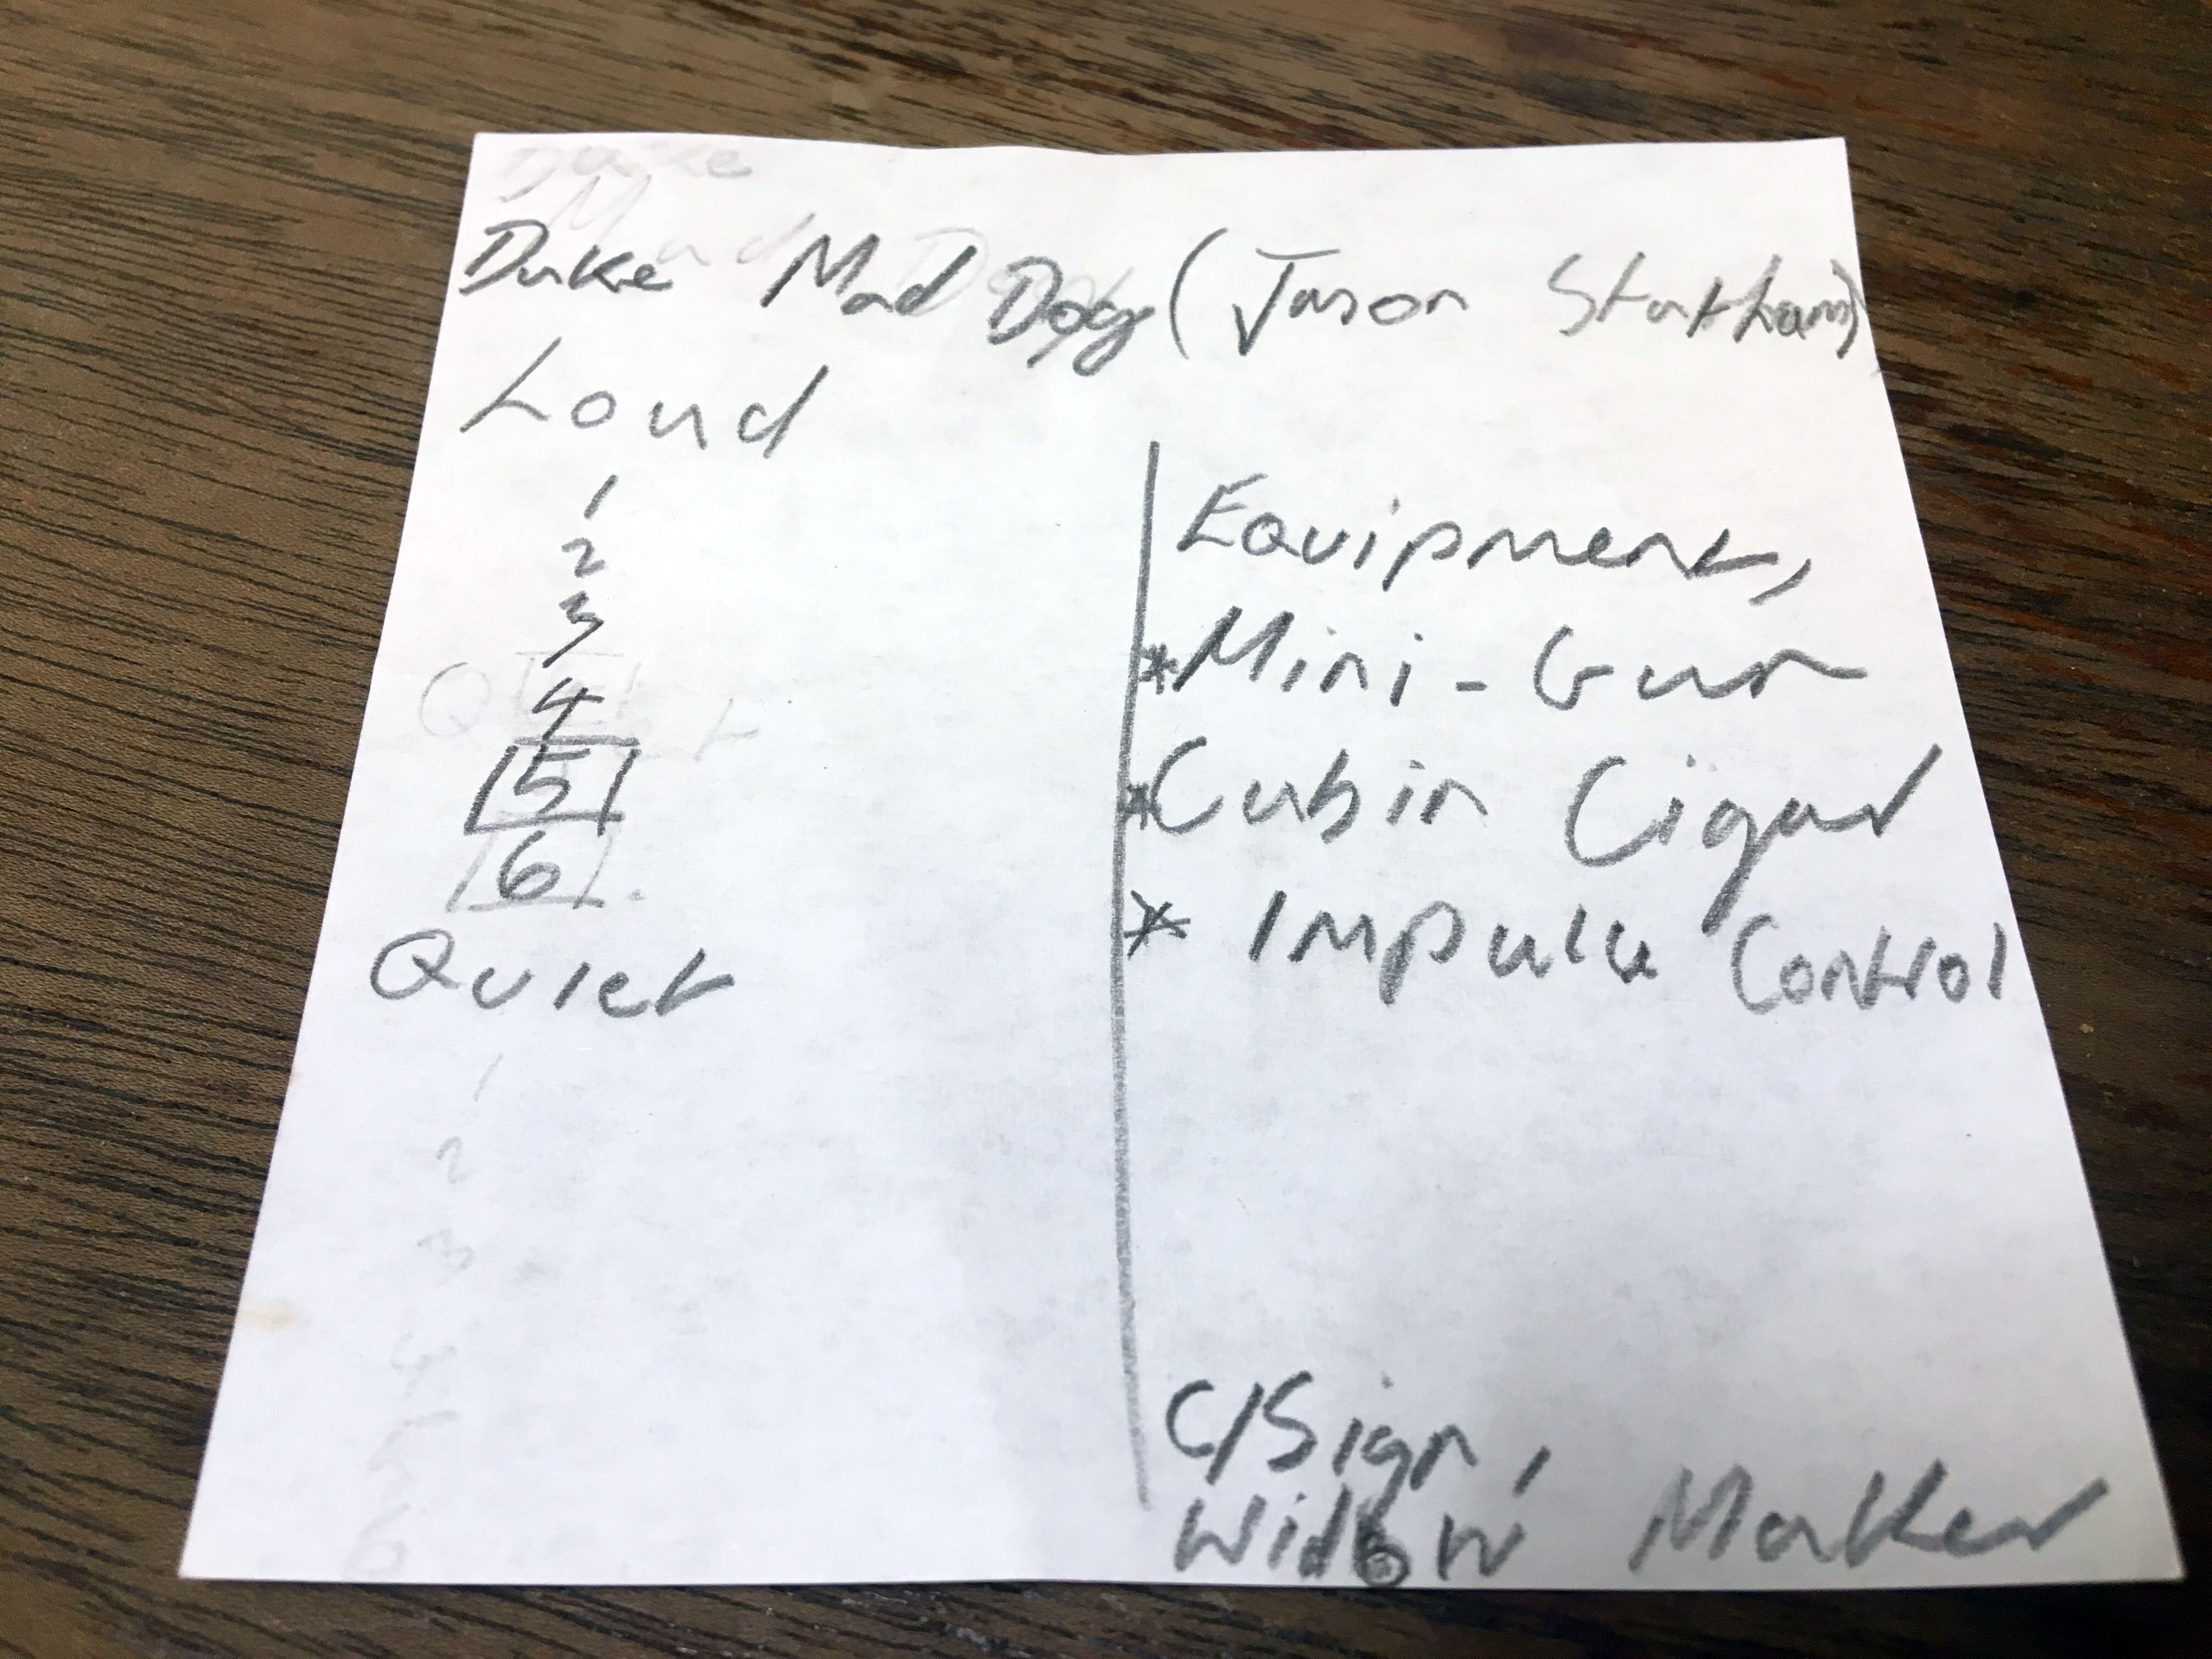 Duke Mad Dog (Jason Statham)
Loud
1
2
3
4
5
6
Quiet
1
2
3
4
5
6
Equipment,
*Mini-Gun
*Cubin Cigar
* Impulse Control
C/Sign,
Widow Maker